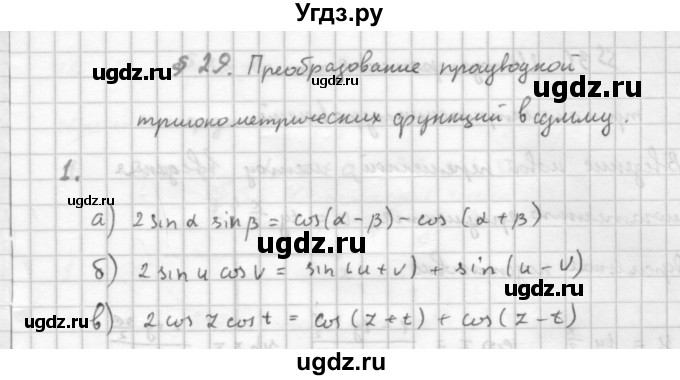 Угдз.ру
§ 29. Преобразование производной
тригонометрических функций в сумму.
1.
а) 2 sin α sin β = cos(α - β) - cos(α + β)
б) 2 sin u cos v = sin(u + v) + sin(u - v)
в) 2 cos z cos t = cos(z + t) + cos(z - t)
ugdz.ru
ugdz.ru
ugdz.ru
ugdz.ru
ugdz.ru
ugdz.ru
ugdz.ru
ugdz.ru
ugdz.ru
ugdz.ru
ugdz.ru